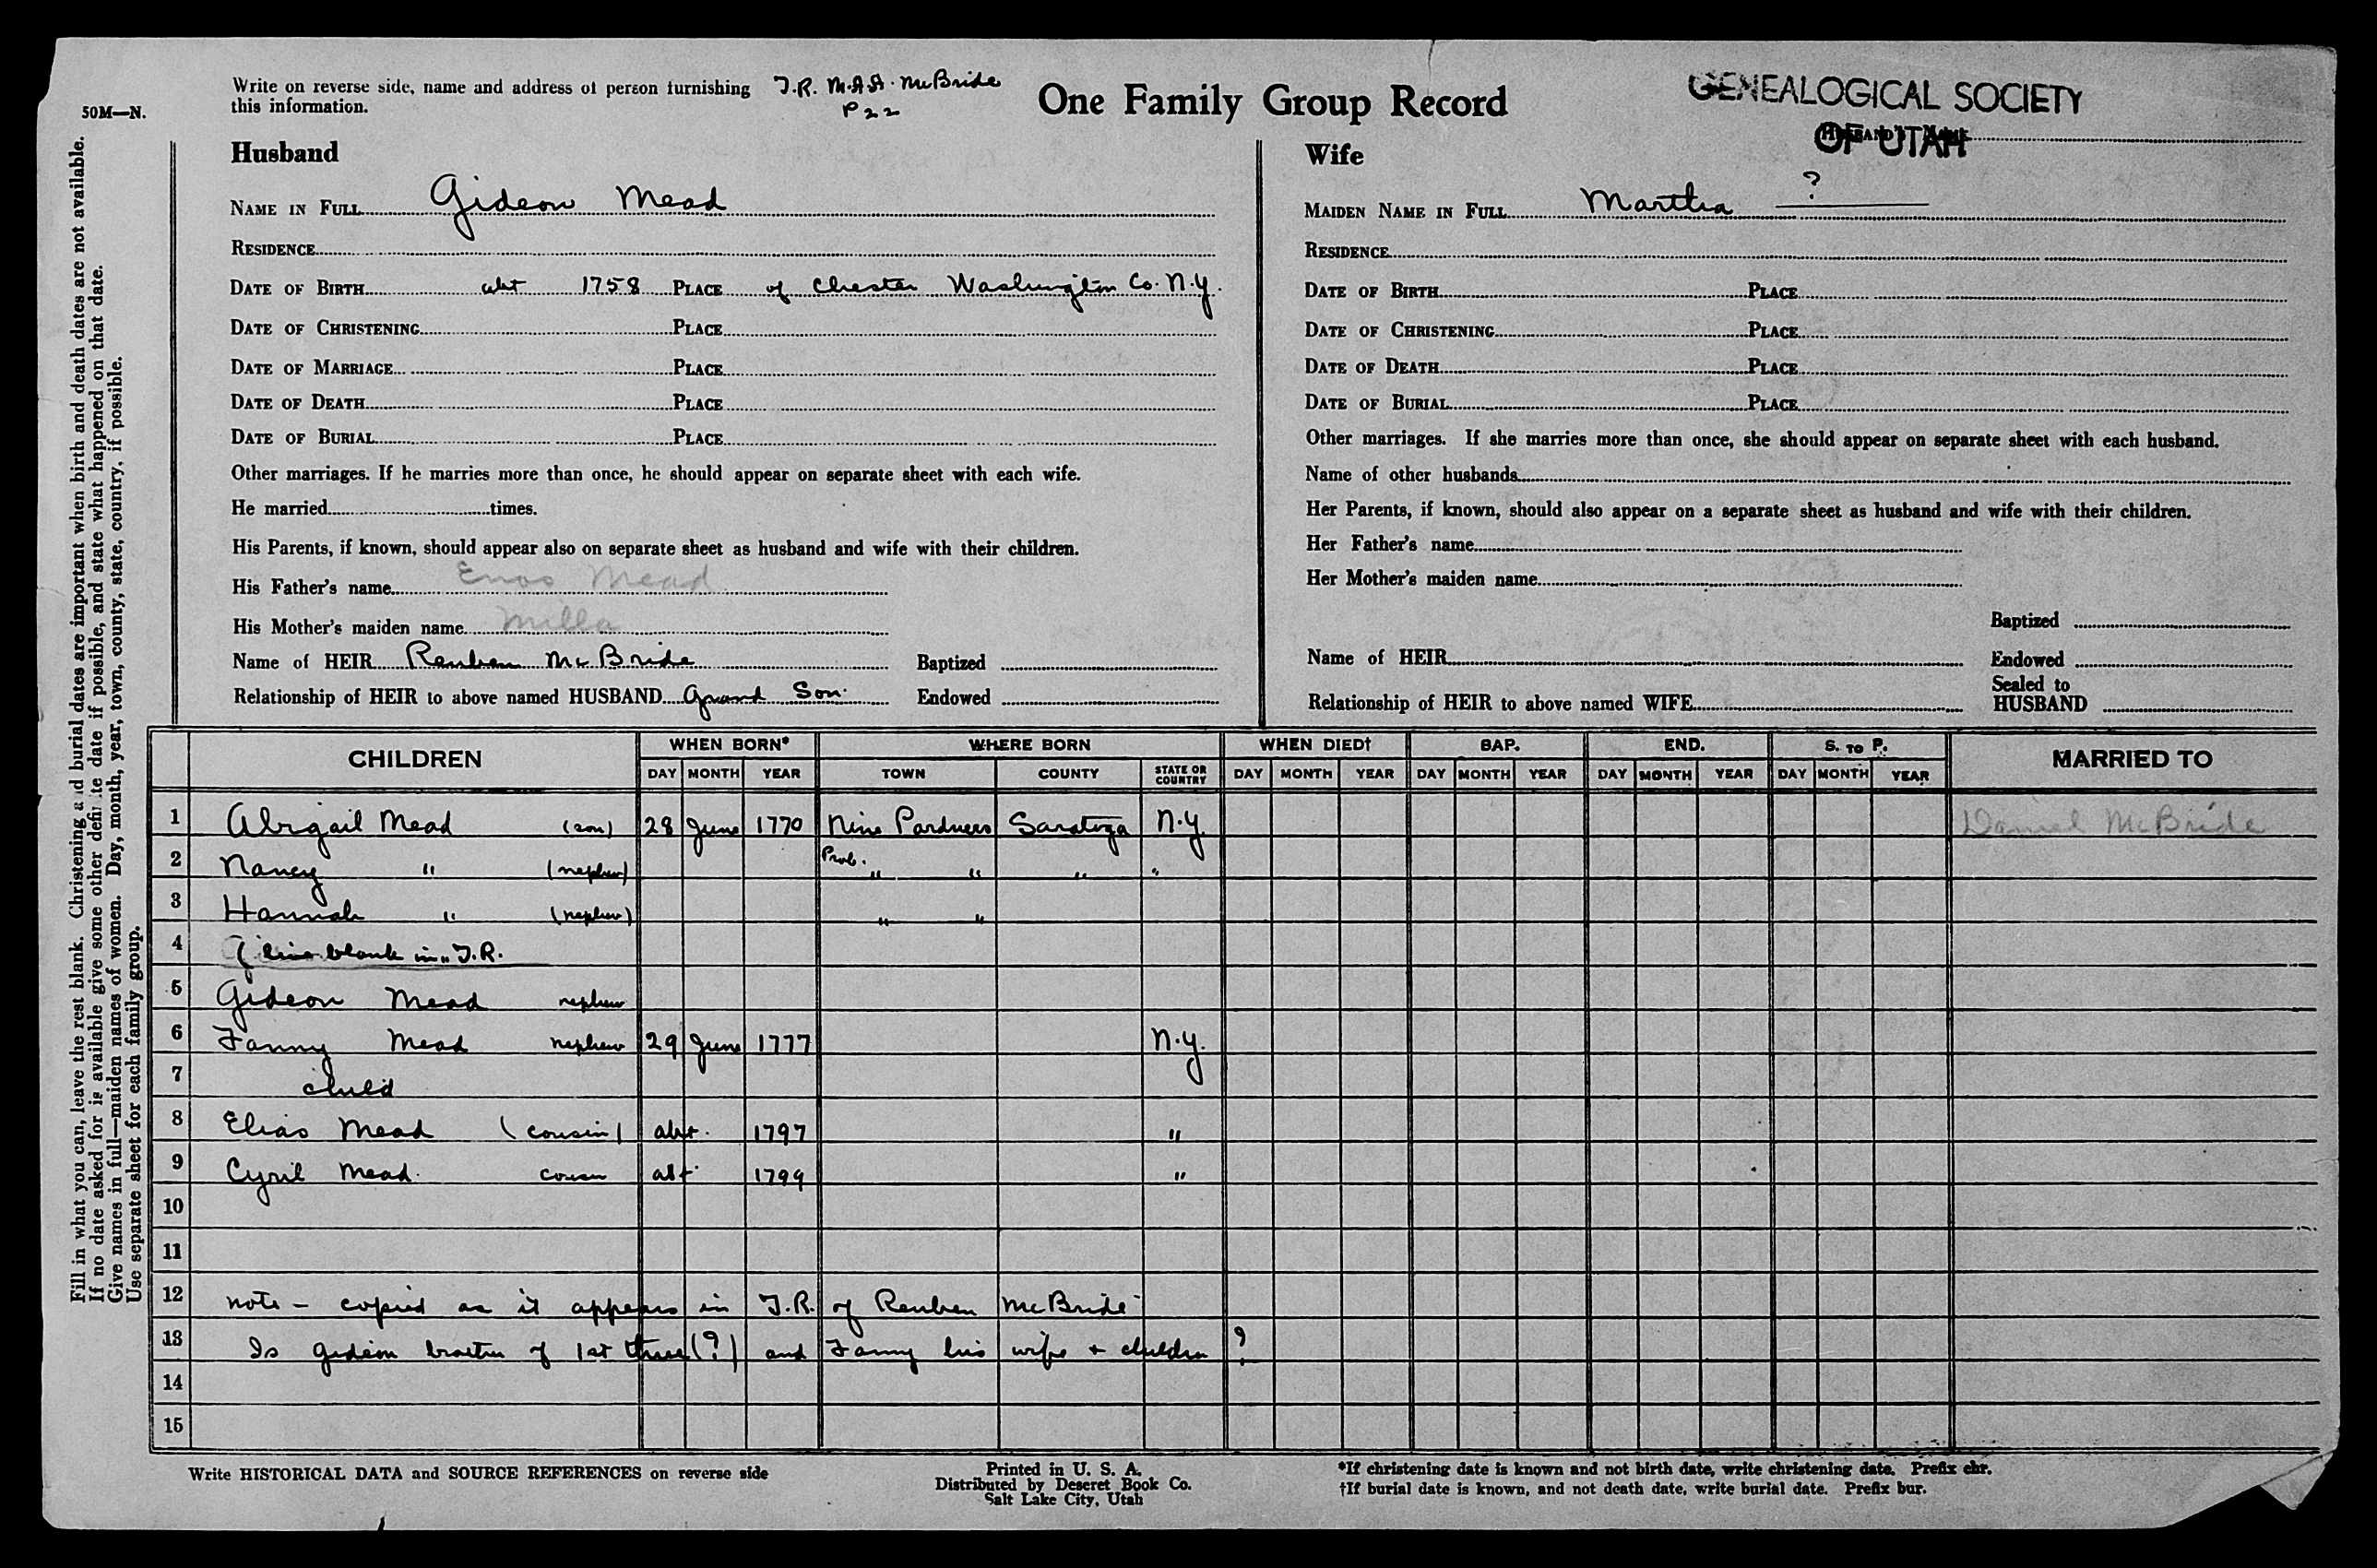 Write on reverse side, name and address of person furnishing this information. T.R. M.A.A. McBride
P 22
One Family Group Record
GENEALOGICAL SOCIETY
OF UTAH
50M—N.
Fill in what you can, leave the rest blank. Christening and burial dates are important when birth and death dates are not available.
If no date asked for is available give some other definite date if possible, and state what happened on that date.
Give names in full—maiden names of women. Day, month, year, town, county, state, country, if possible.
Use separate sheet for each family group.
Husband
NAME IN FULL Gideon Mead
RESIDENCE
DATE OF BIRTH abt 1758 PLACE of Chester Washington Co. N.Y.
DATE OF CHRISTENING PLACE
DATE OF MARRIAGE PLACE
DATE OF DEATH PLACE
DATE OF BURIAL PLACE
Other marriages. If he marries more than once, he should appear on separate sheet with each wife.
He married times.
His Parents, if known, should appear also on separate sheet as husband and wife with their children.
His Father's name Enos Mead
His Mother's maiden name Milla
Name of HEIR Reuben McBride Baptized
Relationship of HEIR to above named HUSBAND Grand Son. Endowed
Wife
MAIDEN NAME IN FULL Martha ?
RESIDENCE
DATE OF BIRTH PLACE
DATE OF CHRISTENING PLACE
DATE OF DEATH PLACE
DATE OF BURIAL PLACE
Other marriages. If she marries more than once, she should appear on separate sheet with each husband.
Name of other husbands
Her Parents, if known, should also appear on a separate sheet as husband and wife with their children.
Her Father's name
Her Mother's maiden name
Baptized
Name of HEIR Endowed
Relationship of HEIR to above named WIFE Sealed to HUSBAND
CHILDREN WHEN BORN* WHERE BORN WHEN DIED† BAP. END. S. TO P. MARRIED TO
DAY MONTH YEAR TOWN COUNTY STATE OR COUNTRY DAY MONTH YEAR DAY MONTH YEAR DAY MONTH YEAR DAY MONTH YEAR
1 Abigail Mead (son) 28 June 1770 Nine Pardners Saratoga N.Y. Daniel McBride
2 Nancy " (nephew) Prob. " " " "
3 Hannah " (nephew) " "
4 line blank in T.R.
5 Gideon Mead nephew
6 Fanny Mead nephew 29 June 1777 N.Y.
7 child
8 Elias Mead (cousin) abt. 1797 "
9 Cyril Mead. cousin abt. 1799 "
10
11
12 note – copied as it appears in T.R. of Reuben McBride
13 Is Gideon brother of 1st three (?) and Fanny his wife + children ?
14
15
Write HISTORICAL DATA and SOURCE REFERENCES on reverse side
Printed in U. S. A.
Distributed by Deseret Book Co.
Salt Lake City, Utah
*If christening date is known and not birth date, write christening date. Prefix chr.
†If burial date is known, and not death date, write burial date. Prefix bur.